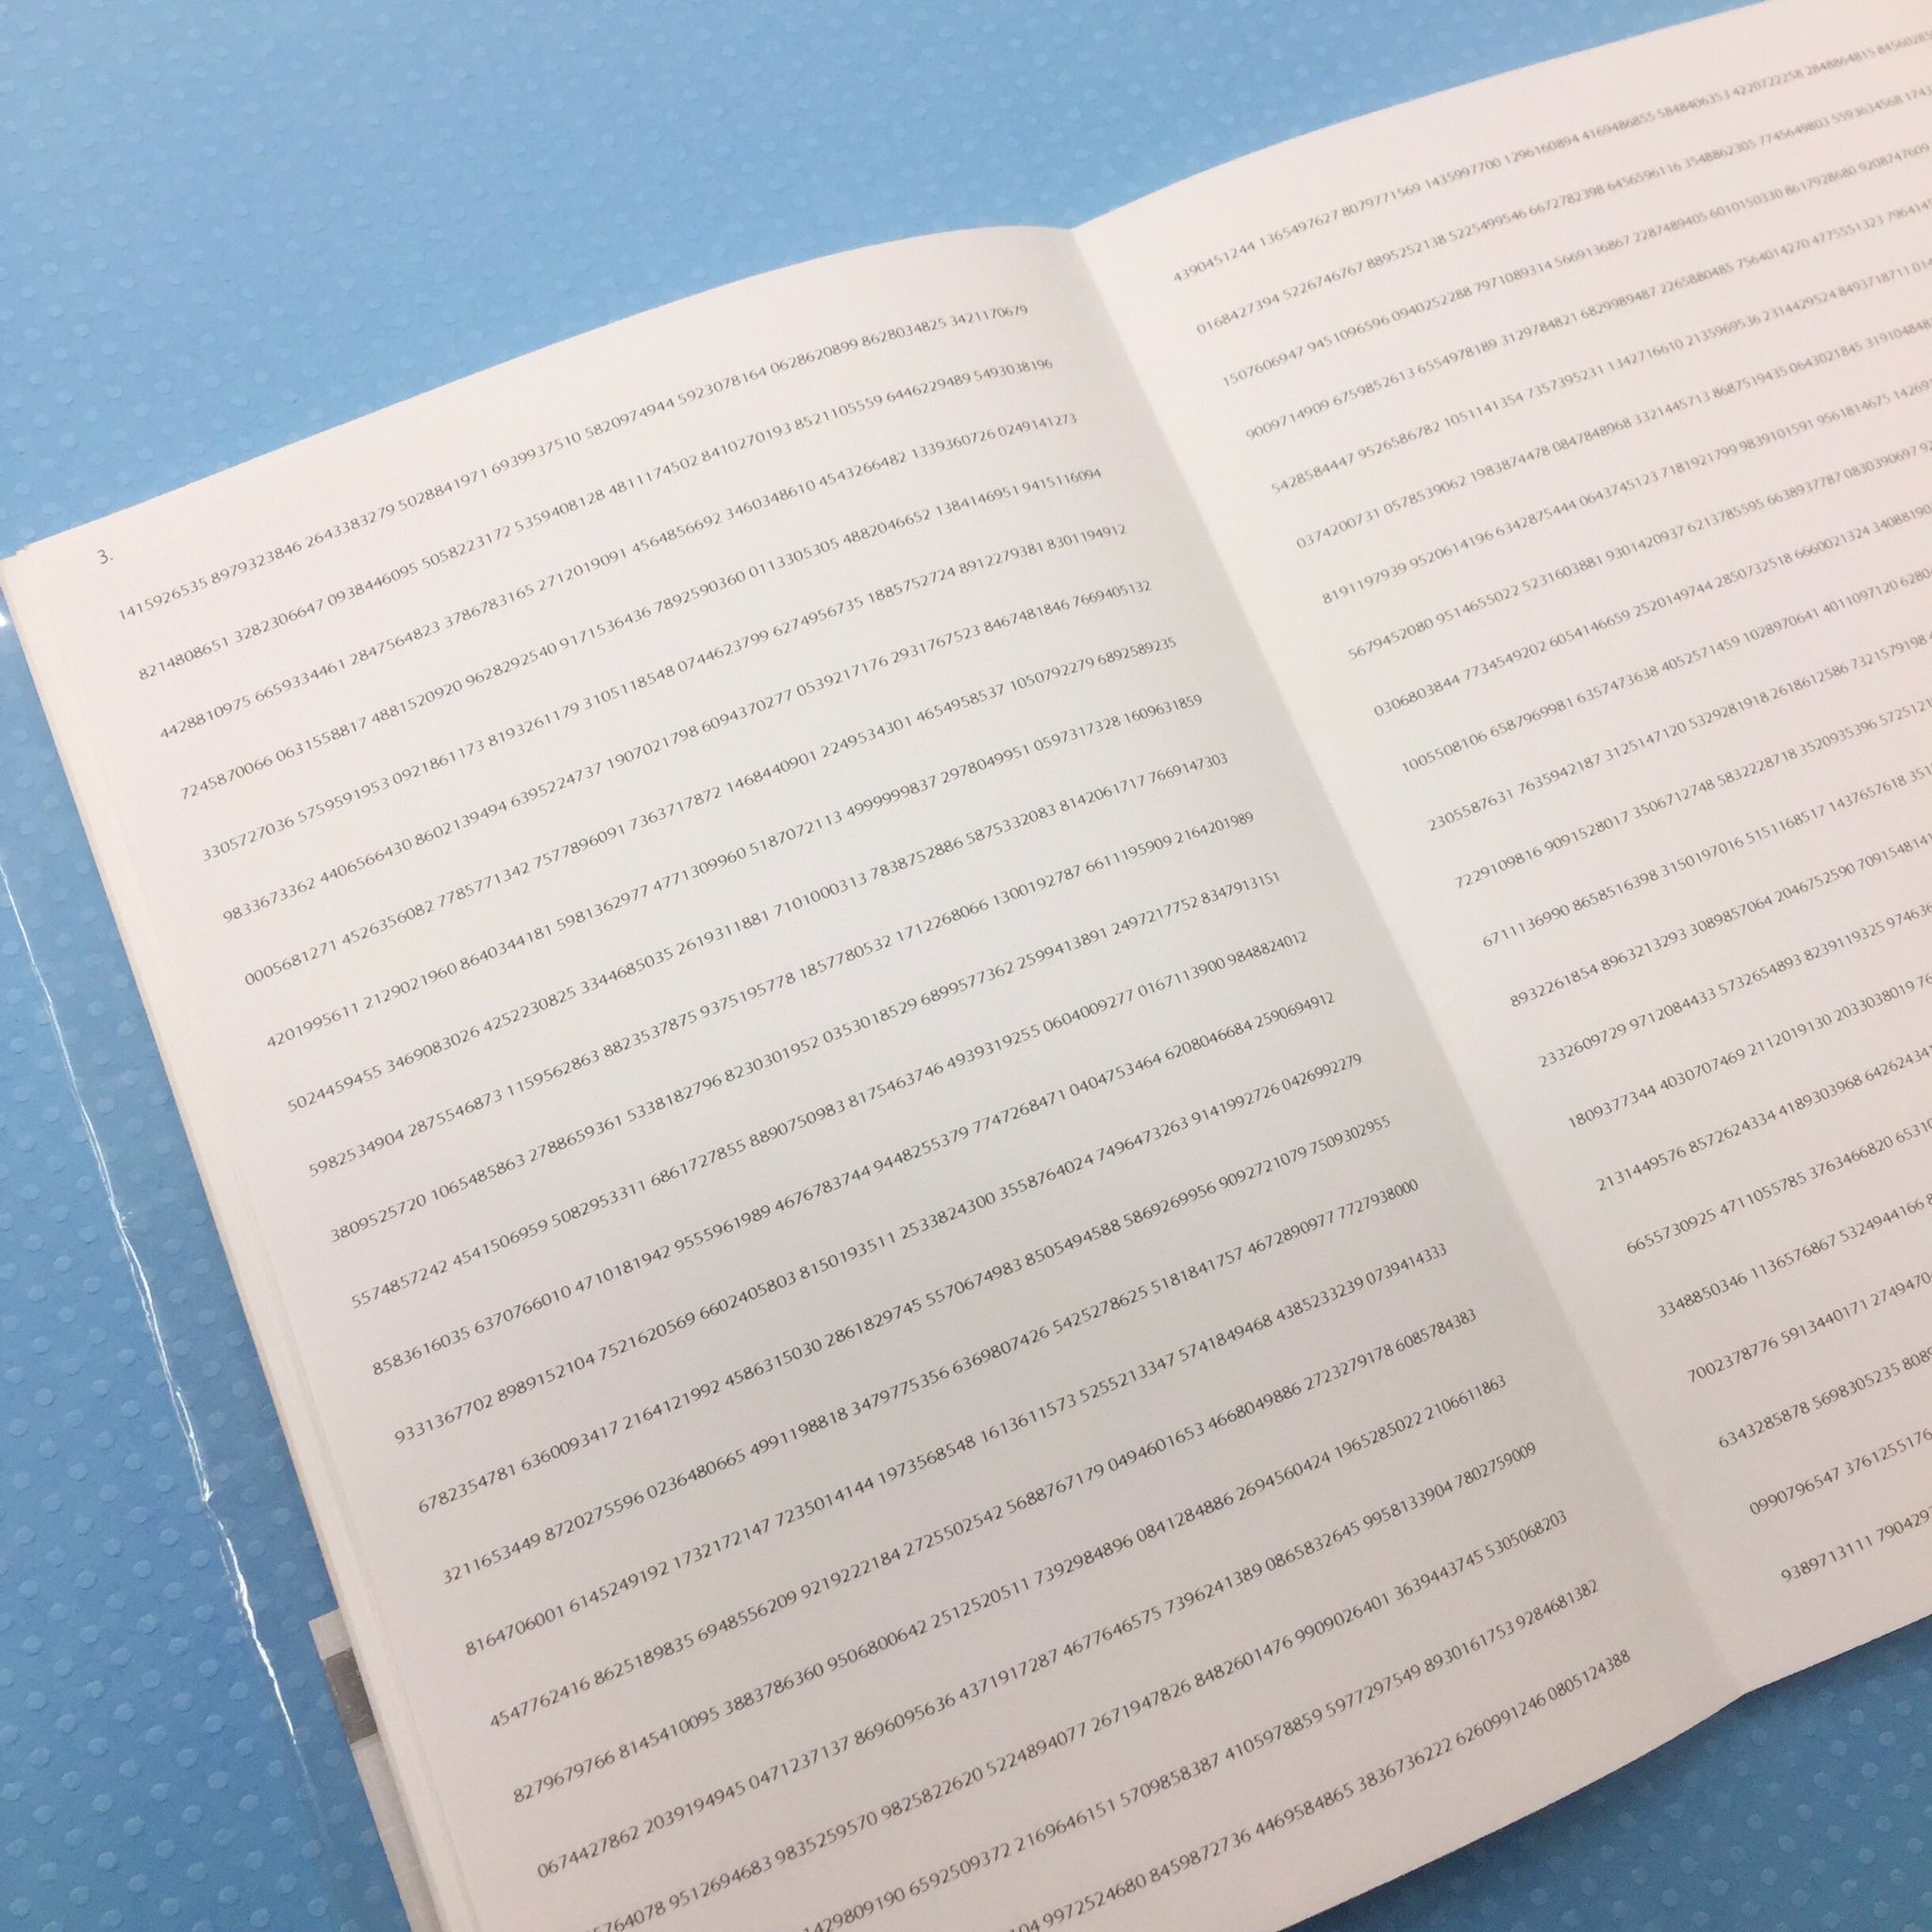 3.
1415926535 8979323846 2643383279 5028841971 6939937510 5820974944 5923078164 0628620899 8628034825 3421170679
8214808651 3282306647 0938446095 5058223172 5359408128 4811174502 8410270193 8521105559 6446229489 5493038196
4428810975 6659334461 2847564823 3786783165 2712019091 4564856692 3460348610 4543266482 1339360726 0249141273
7245870066 0631558817 4881520920 9628292540 9171536436 7892590360 0113305305 4882046652 1384146951 9415116094
3305727036 5759591953 0921861173 8193261179 3105118548 0744623799 6274956735 1885752724 8912279381 8301194912
9833673362 4406566430 8602139494 6395224737 1907021798 6094370277 0539217176 2931767523 8467481846 7669405132
0005681271 4526356082 7785771342 7577896091 7363717872 1468440901 2249534301 4654958537 1050792279 6892589235
4201995611 2129021960 8640344181 5981362977 4771309960 5187072113 4999999837 2978049951 0597317328 1609631859
5024459455 3469083026 4252230825 3344685035 2619311881 7101000313 7838752886 5875332083 8142061717 7669147303
5982534904 2875546873 1159562863 8823537875 9375195778 1857780532 1712268066 1300192787 6611195909 2164201989
3809525720 1065485863 2788659361 5338182796 8230301952 0353018529 6899577362 2599413891 2497217752 8347913151
5574857242 4541506959 5082953311 6861727855 8890750983 8175463746 4939319255 0604009277 0167113900 9848824012
8583616035 6370766010 4710181942 9555961989 4676783744 9448255379 7747268471 0404753464 6208046684 2590694912
9331367702 8989152104 7521620569 6602405803 8150193511 2533824300 3558764024 7496473263 9141992726 0426992279
6782354781 6360093417 2164121992 4586315030 2861829745 5570674983 8505494588 5869269956 9092721079 7509302955
3211653449 8720275596 0236480665 4991198818 3479775356 6369807426 5425278625 5181841757 4672890977 7727938000
8164706001 6145249192 1732172147 7235014144 1973568548 1613611573 5255213347 5741849468 4385233239 0739414333
4547762416 8625189835 6948556209 9219222184 2725502542 5688767179 0494601653 4668049886 2723279178 6085784383
8279679766 8145410095 3883786360 9506800642 2512520511 7392984896 0841284886 2694560424 1965285022 2106611863
0674427862 2039194945 0471237137 8696095636 4371917287 4677646575 7396241389 0865832645 9958133904 7802759009
9512694683 9835259570 9825822620 5224894077 2671947826 8482601476 9909026401 3639443745 5305068203
6592509372 2169646151 5709858387 4105978859 5977297549 8930161753 9284681382
9972524680 8459872736 4469584865 3836736222 6260991246 0805124388
4390451244 1365497627 8079771569 1435997700 1296160894 4169486855 5848406353 4220722258 2848864815
0168427394 5226746767 8895252138 5225499546 6672782398 6456596116 3548862305 7745649803 5593634568
1507606947 9451096596 0940252288 7971089314 5669136867 2287489405 6010150330 8617928680 9208747609
9009714909 6759852613 6554978189 3129784821 6829989487 2265880485 7564014270 4775551323
5428584447 9526586782 1051141354 7357395231 1342716610 2135969536 2314429524 8493718711
0374200731 0578539062 1983874478 0847848968 3321445713 8687519435 0643021845
8191197939 9520614196 6342875444 0643745123 7181921799 9839101591 9561814675
5679452080 9514655022 5231603881 9301420937 6213785595 6638937787 0830390697
0306803844 7734549202 6054146659 2520149744 2850732518 6660021324
1005508106 6587969981 6357473638 4052571459 1028970641 4011097120
2305587631 7635942187 3125147120 5329281918 2618612586 7321579198
7229109816 9091528017 3506712748 5832228718 3520935396
6711136990 8658516398 3150197016 5151168517 1437657618
8932261854 8963213293 3089857064 2046752590
2332609729 9712084433 5732654893 8239119325
1809377344 4030707469 2112019130 2033038019
2131449576 8572624334 4189303968
6655730925 4711055785 3763466820
3348850346 1136576867 5324944166
7002378776 5913440171
6343285878 5698305235
0990796547 3761255176
9389713111